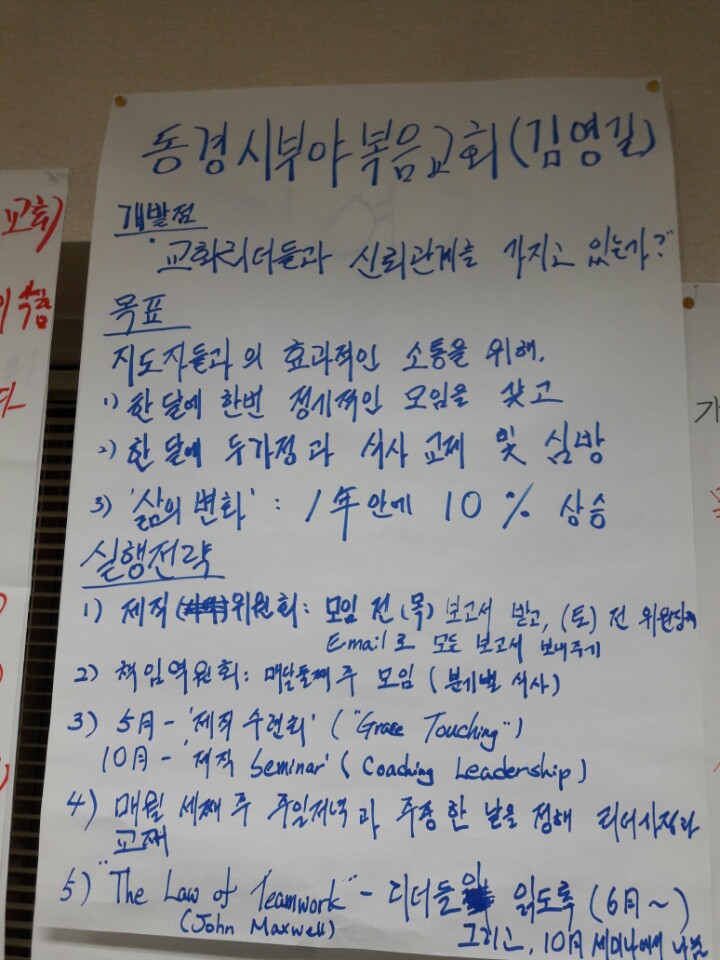 동경시부야복음교회(김영길)
개발점
"교회리더들과 신뢰관계를 가지고 있는가?"
목표
지도자들과의 효과적인 소통을 위해.
1) 한달에 한번 정기적인 모임을 갖고
2) 한달에 두가정과 식사 교제 및 심방
3) '삶의 변화' : 1年안에 10% 상승
실행전략
1) 제직 위원회: 모임 전(목) 보고서 받고, (토) 전 위원들께
Email로 모든 보고서 보내주기
2) 책임역원회: 매달 둘째주 모임 (분기별 식사)
3) 5月 - '제직 수련회' ("Grace Touching")
10月 - '제직 Seminar' (Coaching Leadership)
4) 매월 세째 주 주일저녁과 주중 한 날을 정해 리더가정과
교제
5) "The Law of Teamwork" - 리더들이 읽도록 (6月~)
(John Maxwell)
그리고, 10月 세미나에서 나눔
교회)